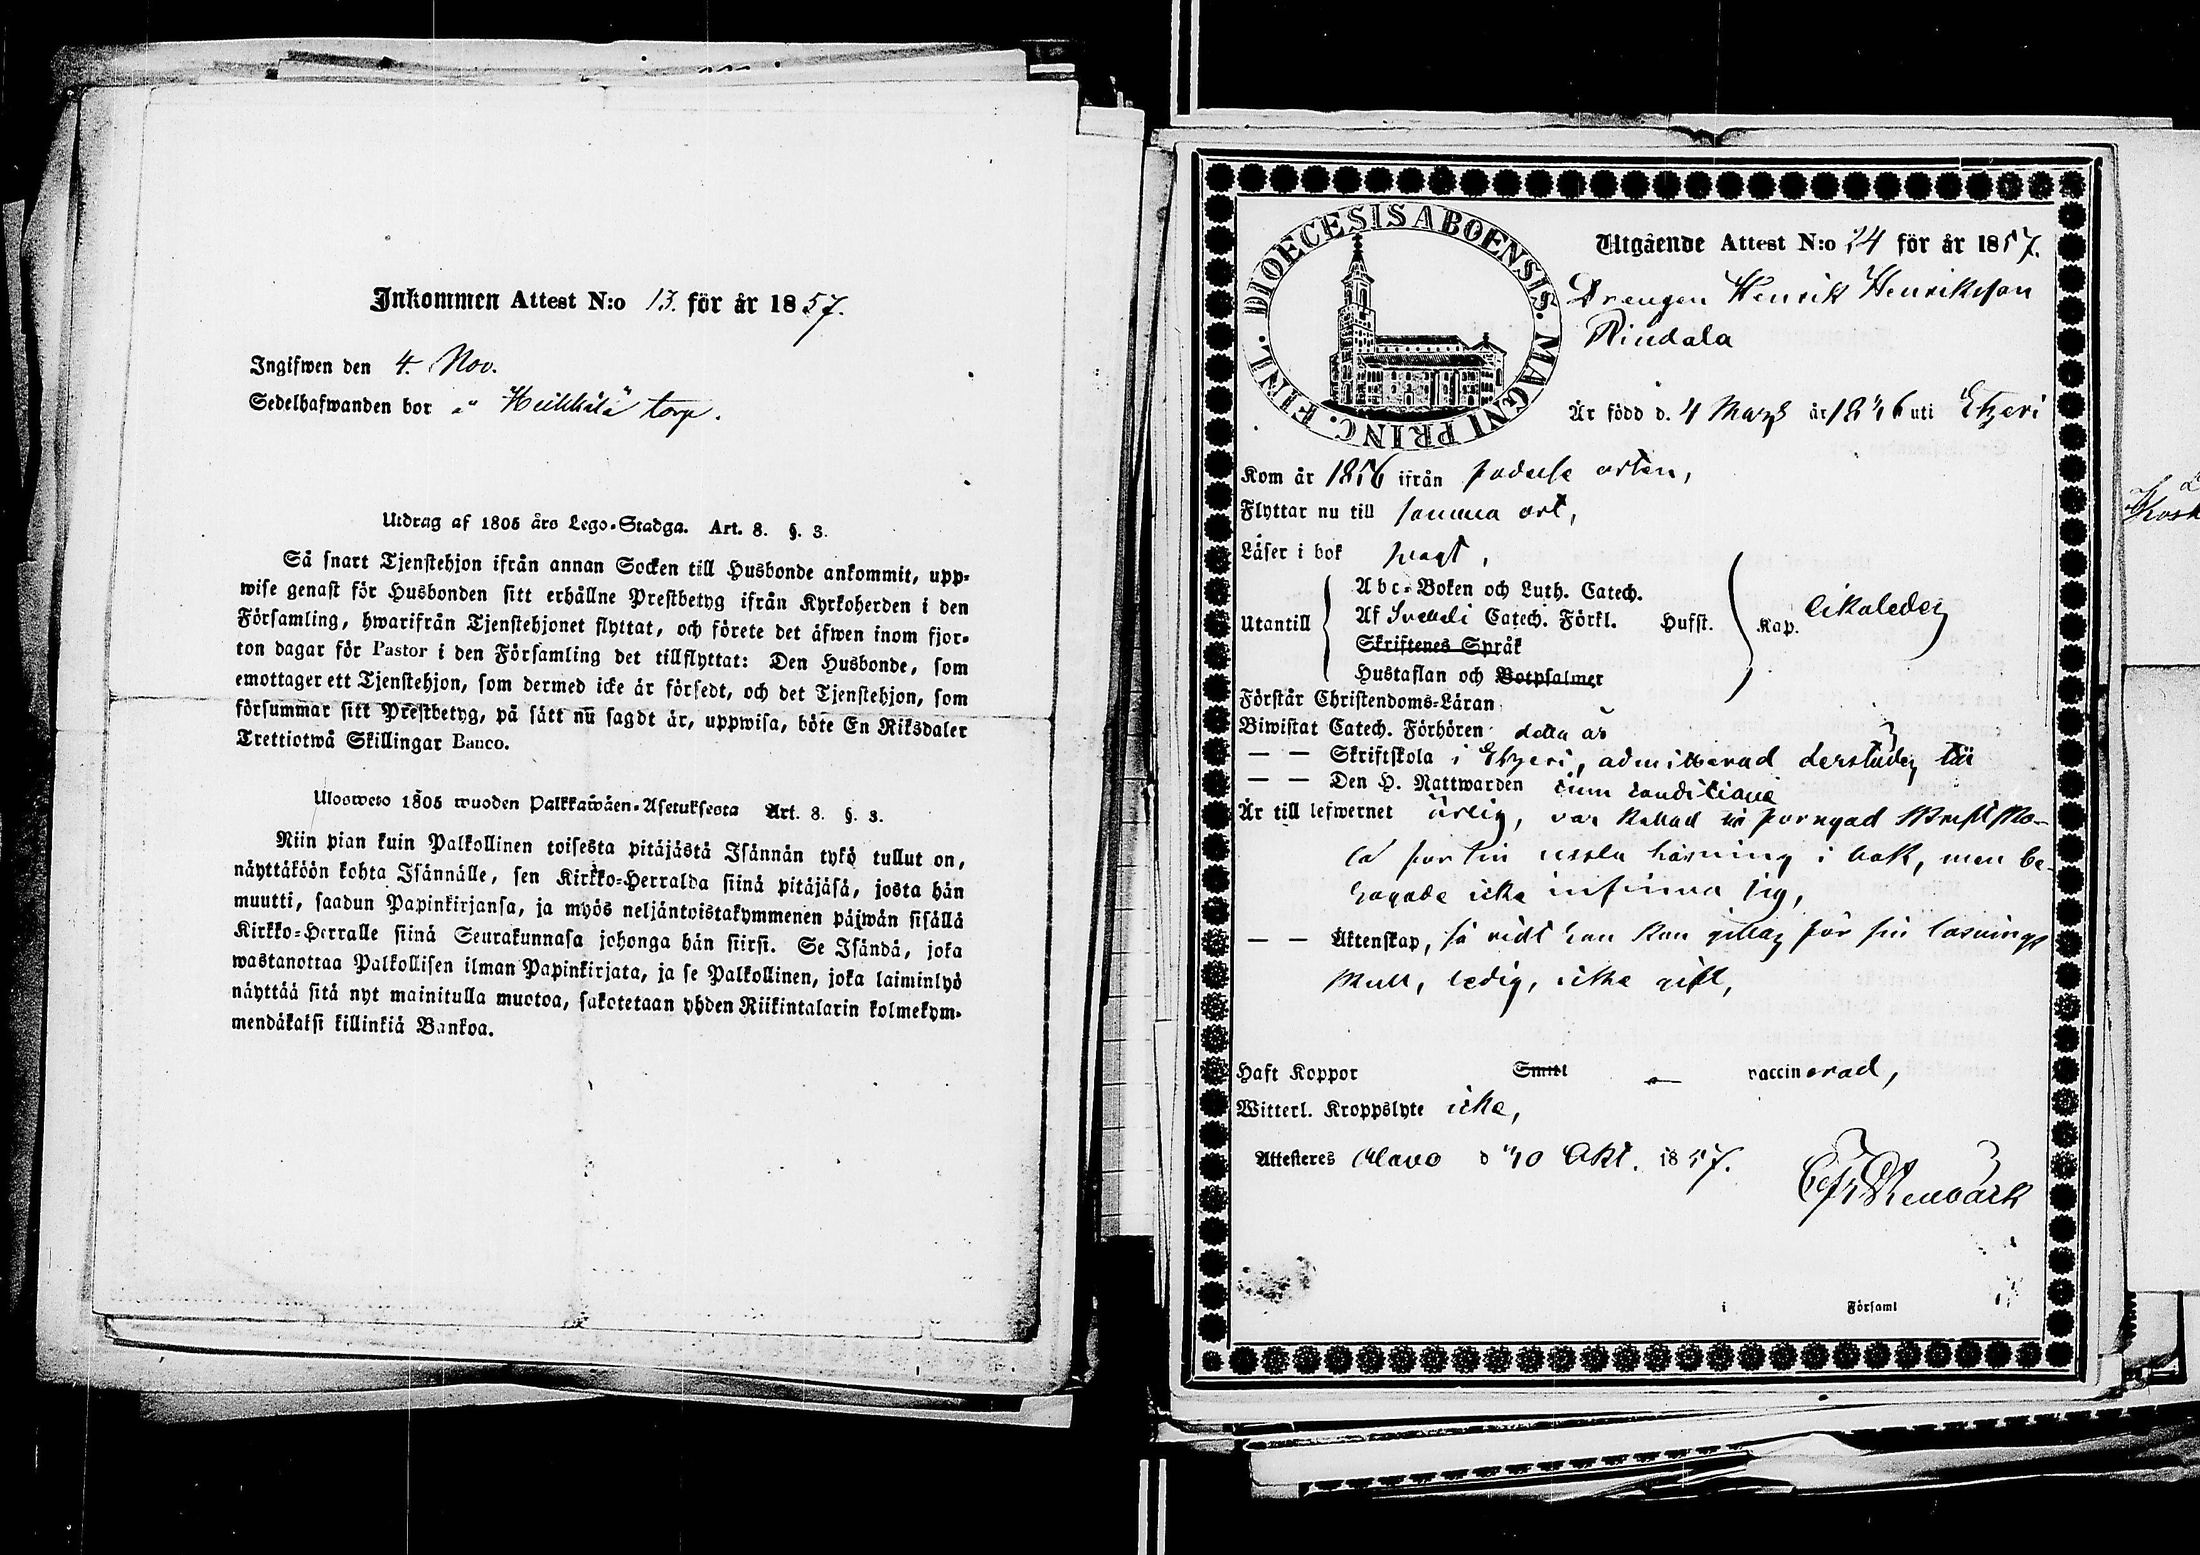 Inkommen Attest N:o 13. för år 1857.
Ingifwen den 4. Nov.
Sedelhafwanden bor å Heikkilä torp.
Utdrag af 1805 års Lego-Stadga. Art. 8. §. 3.
Så snart Tjenstehjon ifrån annan Socken till Husbonde ankommit, upp-
wise genast för Husbonden sitt erhållne Prestbetyg ifrån Kyrkoherden i den
Församling, hwarifrån Tjenstehjonet flyttat, och förete det äfwen inom fjor-
ton dagar för Pastor i den Församling det tillflyttat: Den Husbonde, som
emottager ett Tjenstehjon, som dermed icke är försedt, och det Tjenstehjon, som
försummar sitt Prestbetyg, på sätt nu sagdt är, uppwisa, böte En Riksdaler
Trettiotwå Skillingar Banco.
Uloswето 1805 wuoden Palkkawäen-Asetuksesta Art. 8. §. 3.
Niin pian kuin Palkollinen toisesta pitäjästä Isännän tykö tullut on,
näyttäköön kohta Isännälle, sen Kirkko-Herralda siinä pitäjäsä, josta hän
muutti, saadun Papinkirjansa, ja myös neljäntoistakymmenen päiwän sisällä
Kirkko-Herralle siinä Seurakunnasa johonga hän siirsi. Se Isändä, joka
wastanottaa Palkollisen ilman Papinkirjata, ja se Palkollinen, joka laiminlyö
näyttää sitä nyt mainitulla muotoa, sakotetaan yhden Riikintalarin kolmekym-
mendäkaksi killinkiä Bankoa.
DIOECESIS ABOENSIS. MAGNI PRINC. FINL.
Utgående Attest N:o 24 för år 1857.
Drengen Henrik Henriksson
Rindala
Är född d. 4 Mars år 1836 uti Etzeri
Kom år 1856 ifrån födelse orten,
Flyttar nu till samma ort,
Läser i bok svagt,
Utantill
Abc-Boken och Luth. Catech.
Af Svebeli Catech. Förkl. Hufst. Kap. likaledes
Skriftenes Språk
Hustaflan och Botpsalmer
Förstår Christendoms-Läran
Biwistat Catech. Förhören detta år
— — Skriftskola i Etzeri, admitterad derstädes
— — Den H. Nattwarden cum conditione
Är till lefwernet ärlig, var kallad till förnyad Skriftsko-
la för sin ussla läsning i bok, men be-
hagade icke infinna sig,
— — Äktenskap, så vidt han kan gillas för sin läsnings
skull, ledig, icke gift,
Haft Koppor Smitt — vaccinerad,
Witterl. Kroppslyte icke,
Attesteres Alavo d 30 Okt. 1857.
Renbäck
i Församl